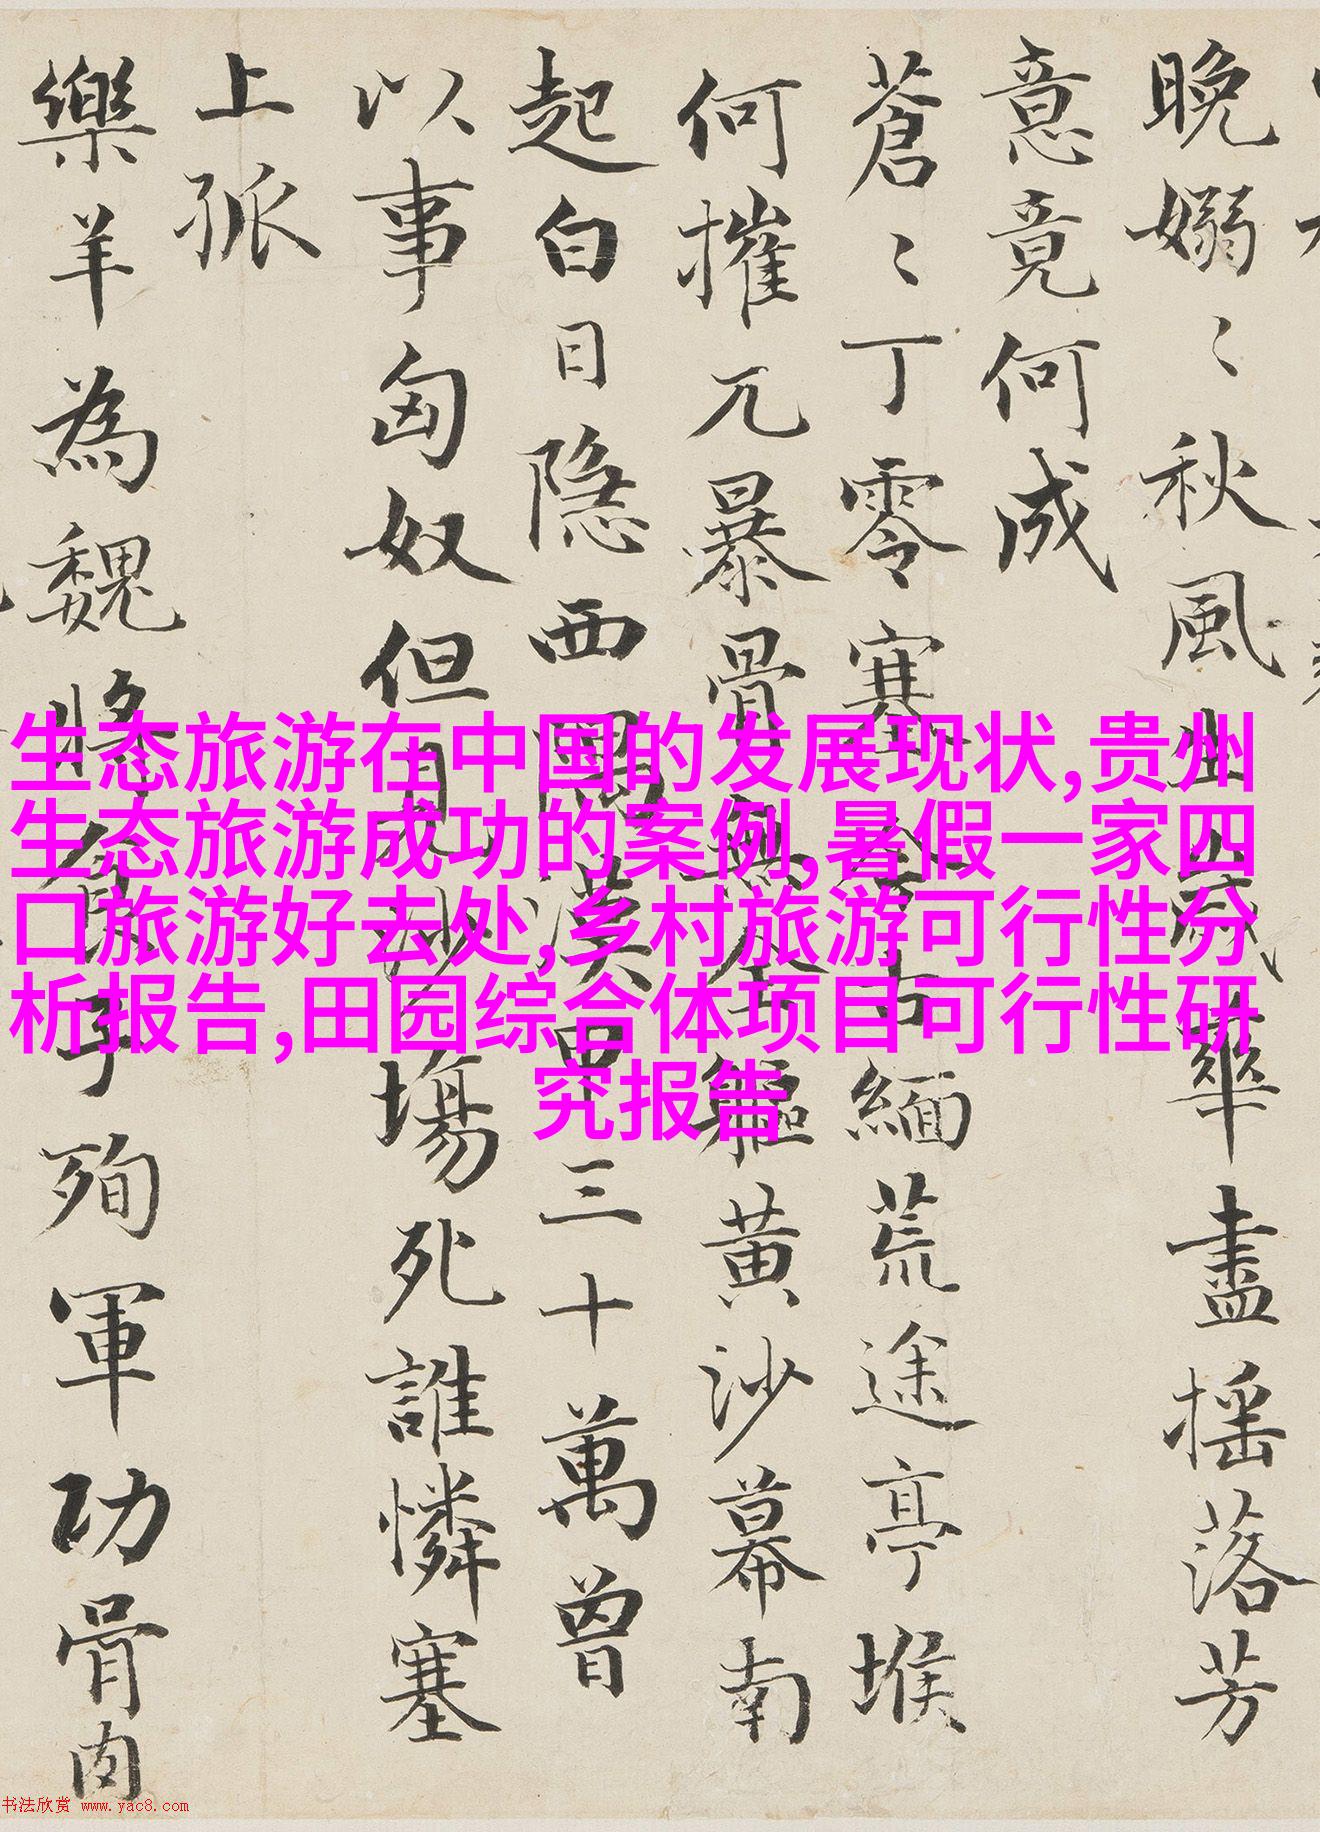 晚嫋〻秋風生歲華盡揺落芳
意竟何成
蒼〻丁零塞今古緬荒途亭堠
何摧兀暴骨無全軀黄沙幕南
起白日隱西隅漢甲三十萬曾
以事匈奴但見沙塲死誰憐塞
上孤
樂羊為魏將食子殉軍功骨肉
生态旅游在中国的发展现状,贵州
生态旅游成功的案例,暑假一家四
口旅游好去处,乡村旅游可行性分
析报告,田园综合体项目可行性研
究报告
书法欣赏 www.yac8.com